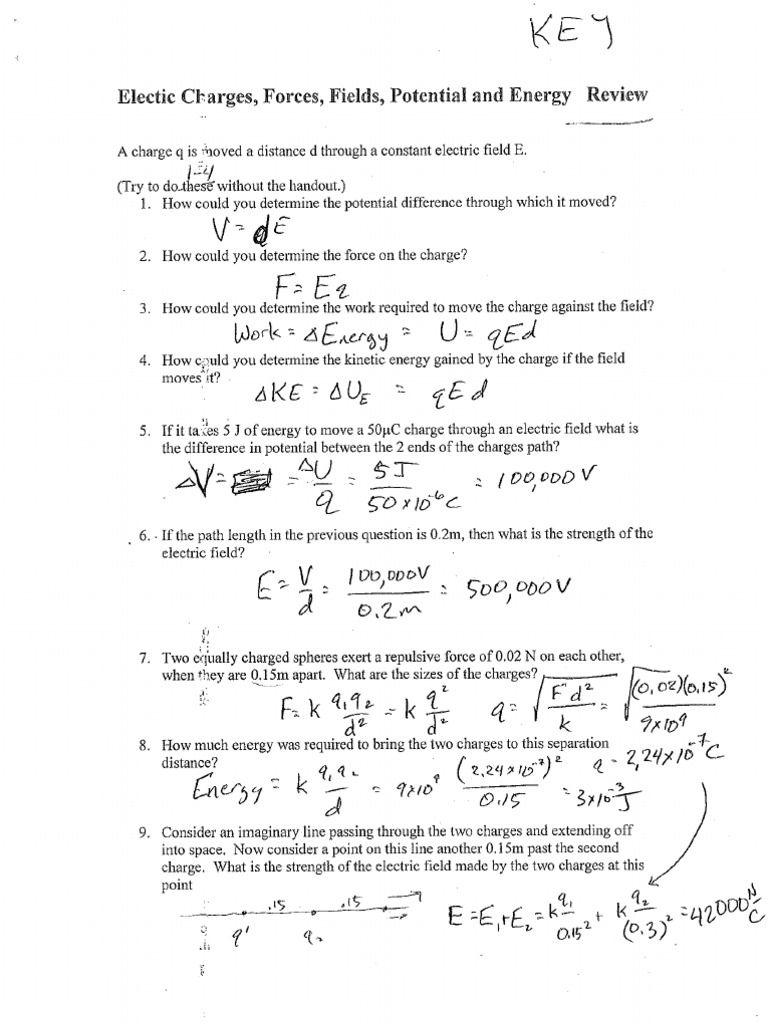 KEY
Electic Charges, Forces, Fields, Potential and Energy Review
A charge q is moved a distance d through a constant electric field E.
1-4
(Try to do these without the handout.)
1. How could you determine the potential difference through which it moved?
V = dE
2. How could you determine the force on the charge?
F = Eq
3. How could you determine the work required to move the charge against the field?
Work = ΔEnergy = U = qEd
4. How could you determine the kinetic energy gained by the charge if the field
moves it?
ΔKE = ΔU_E = qEd
5. If it takes 5 J of energy to move a 50μC charge through an electric field what is
the difference in potential between the 2 ends of the charges path?
ΔV = = ΔU/q = 5J/50×10⁻⁶C = 100,000V
6. If the path length in the previous question is 0.2m, then what is the strength of the
electric field?
E = V/d = 100,000V/0.2m = 500,000V
7. Two equally charged spheres exert a repulsive force of 0.02 N on each other,
when they are 0.15m apart. What are the sizes of the charges?
F = k q₁q₂/d² = k q²/d² q = √(Fd²/k) = √((0,02)(0,15)²/9×10⁹)
q = 2,24×10⁻⁷C
8. How much energy was required to bring the two charges to this separation
distance?
Energy = k q₁q₂/d = 9×10⁹ (2.24×10⁻⁷)²/0.15 = 3×10⁻³J
9. Consider an imaginary line passing through the two charges and extending off
into space. Now consider a point on this line another 0.15m past the second
charge. What is the strength of the electric field made by the two charges at this
point
.15 .15
q' q₂
E = E₁+E₂ = k q₁/0.15² + k q₂/(0.3)² = 42000 N/C